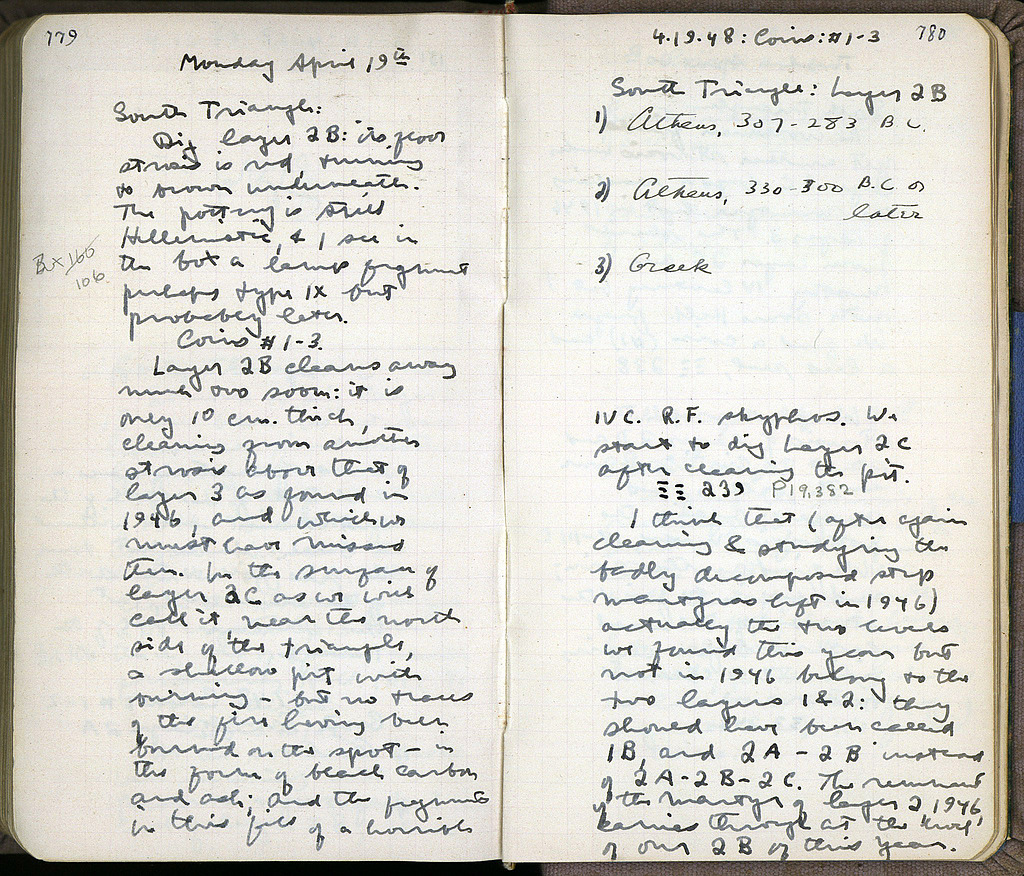 779
Monday April 19th
South Triangle:
Dig layer 2B: its floor
stroses is red, turning
to brown underneath.
The pottery is still
Hellenistic, & I see in
the box a lamp fragment
perhaps type IX but
probably later.
Box 166
106
Coins #1-3.
Layer 2B cleans away
much too soon: it is
only 10 cm. thick,
cleaning from another
strosis above that of
layer 3 as found in
1946, and which we
must have missed
then. In the surface of
layer 2C as we will
call it, near the north
side of the triangle,
a shallow pit with
burning - but no traces
of the fire having been
burned on the spot - in
the form of black carbon
and ash; and the fragments
in this fill of a horrible
4.19.48: Coins: #1-3
780
South Triangle: Layer 2B
1) Athens, 307-283 B.C.
2) Athens, 330-300 B.C. or
later
3) Greek
IV C. R.F. skyphos. We
start to dig Layer 2C
after cleaning the pit.
ΞΞ 239 P19,382
I think that (after again
cleaning & studying the
badly decomposed strip
martyras left in 1946)
actually the two levels
we found this year but
not in 1946 belong to the
two layers 1 & 2: they
should have been called
1B, and 2A-2B instead
of 2A-2B-2C. The remnant
of the martyr of layer 2 1946
carries through at the level
of our 2B of this year.